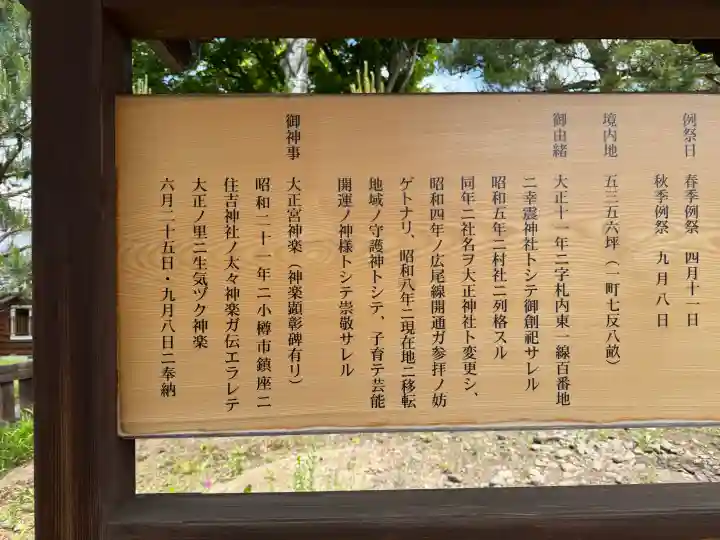 例祭日　春季例祭　四月十一日
秋季例祭　九月八日
境内地　五三五六坪（一町七反八畝）
御由緒　大正十一年ニ字札内東一線百番地
ニ幸震神社トシテ御創祀サレル
昭和五年ニ村社ニ列格スル
同年ニ社名ヲ大正神社ト変更シ、
昭和四年ノ広尾線開通ガ参拝ノ妨
ゲトナリ、昭和八年ニ現在地ニ移転
地域ノ守護神トシテ、子育テ芸能
開運ノ神様トシテ崇敬サレル
御神事　大正宮神楽（神楽顕彰碑有リ）
昭和二十一年ニ小樽市鎮座ニ
住吉神社ノ太々神楽ガ伝エラレテ
大正ノ里ニ生気ヅク神楽
六月二十五日・九月八日ニ奉納